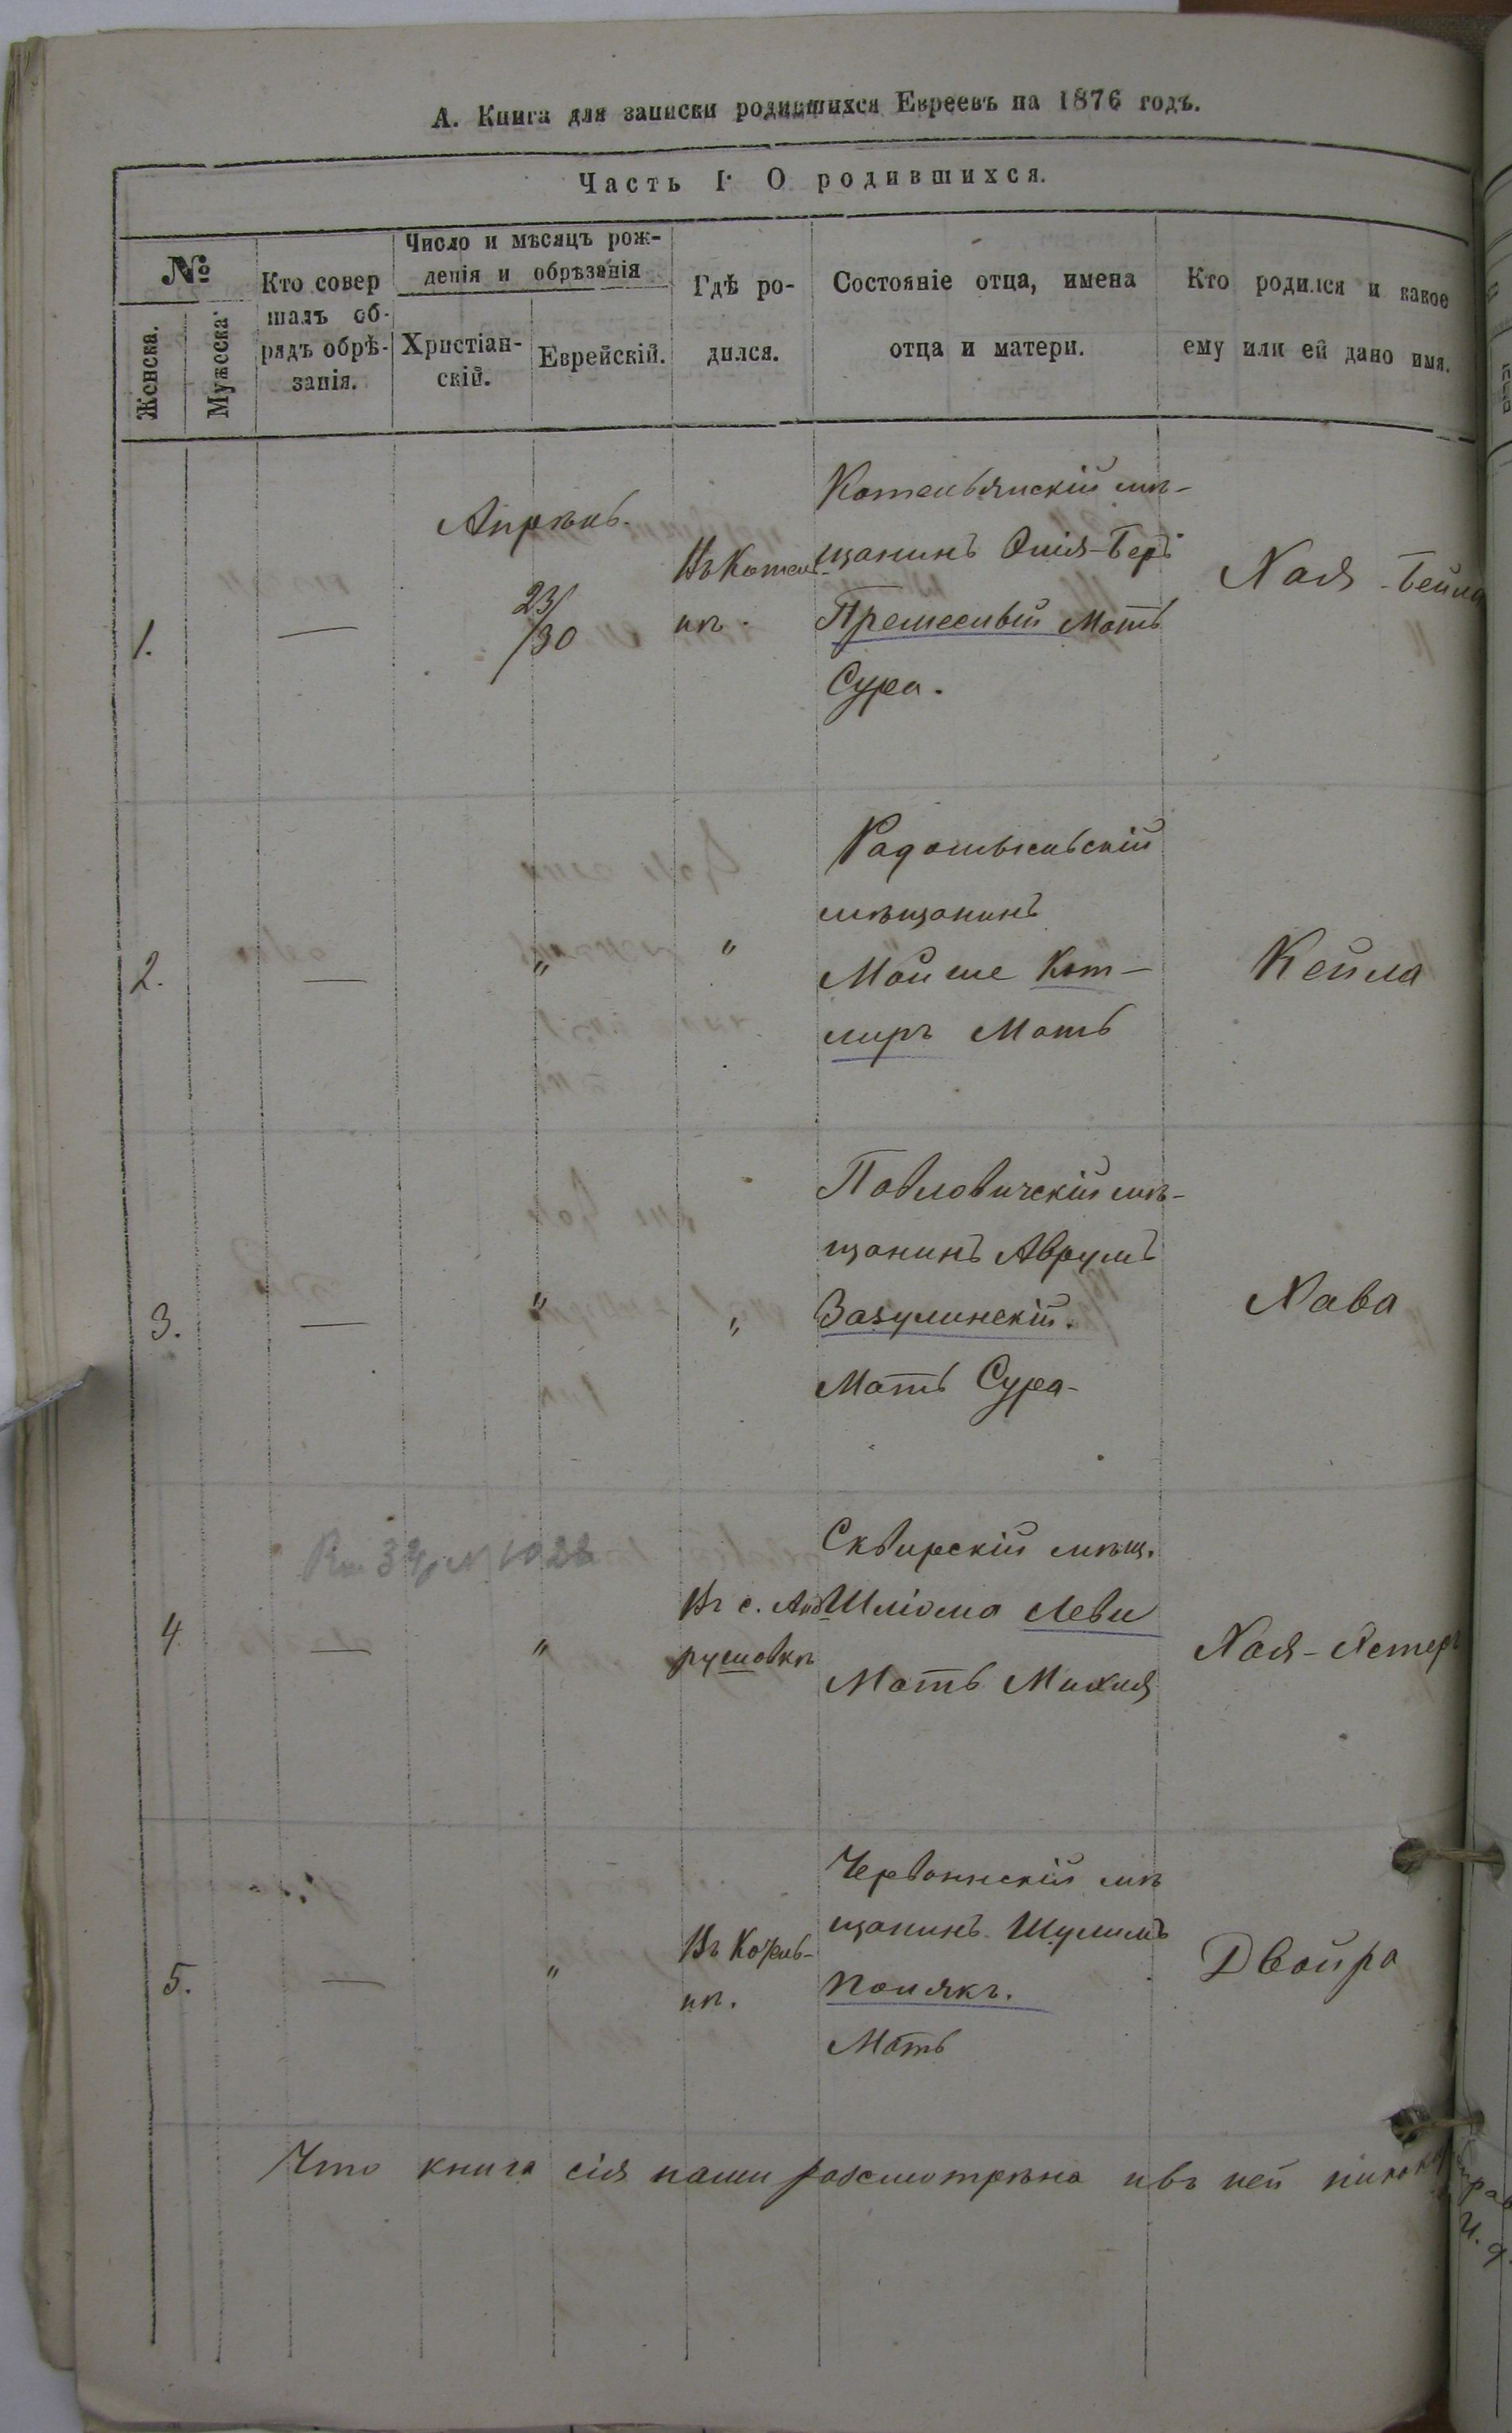 А. Книга для записки родившихся Евреевъ на 1876 годъ.
Часть I. О родившихся.
№
Женска.
Мужска.
Кто совер
шалъ об-
рядъ обрѣ-
занія.
Число и мѣсяцъ рож-
денія и обрѣзанія
Христіан-
скій.
Еврейскій.
Гдѣ ро-
дился.
Состояніе отца, имена
отца и матери.
Кто родился и какое
ему или ей дано имя.
1.
—
Апрѣль.
23/30
Въ Котель-
нѣ.
Котельянскій мѣ-
щанинъ Ошія-Беръ
Мать
Сура.
Хая-Бейла
2.
—
"
"
Радомысльскій
мѣщанинъ
Мойше Кот-
ляръ Мать
Кейла
3.
—
"
"
Паволовичскій мѣ-
щанинъ Аврумъ
Зазулинскій.
Мать Сура-
Хава
4
—
"
Въ с. Анд-
рушовкѣ
Сквирскій мѣщ.
Шліома Леви
Мать Михля
Хая-Эстеръ
5.
—
"
Въ Котель-
нѣ.
Червоннскій мѣ
щанинъ Шулимъ
Полякъ.
Мать
Двойра
Что книга сія нами разсмотрѣна и въ ней